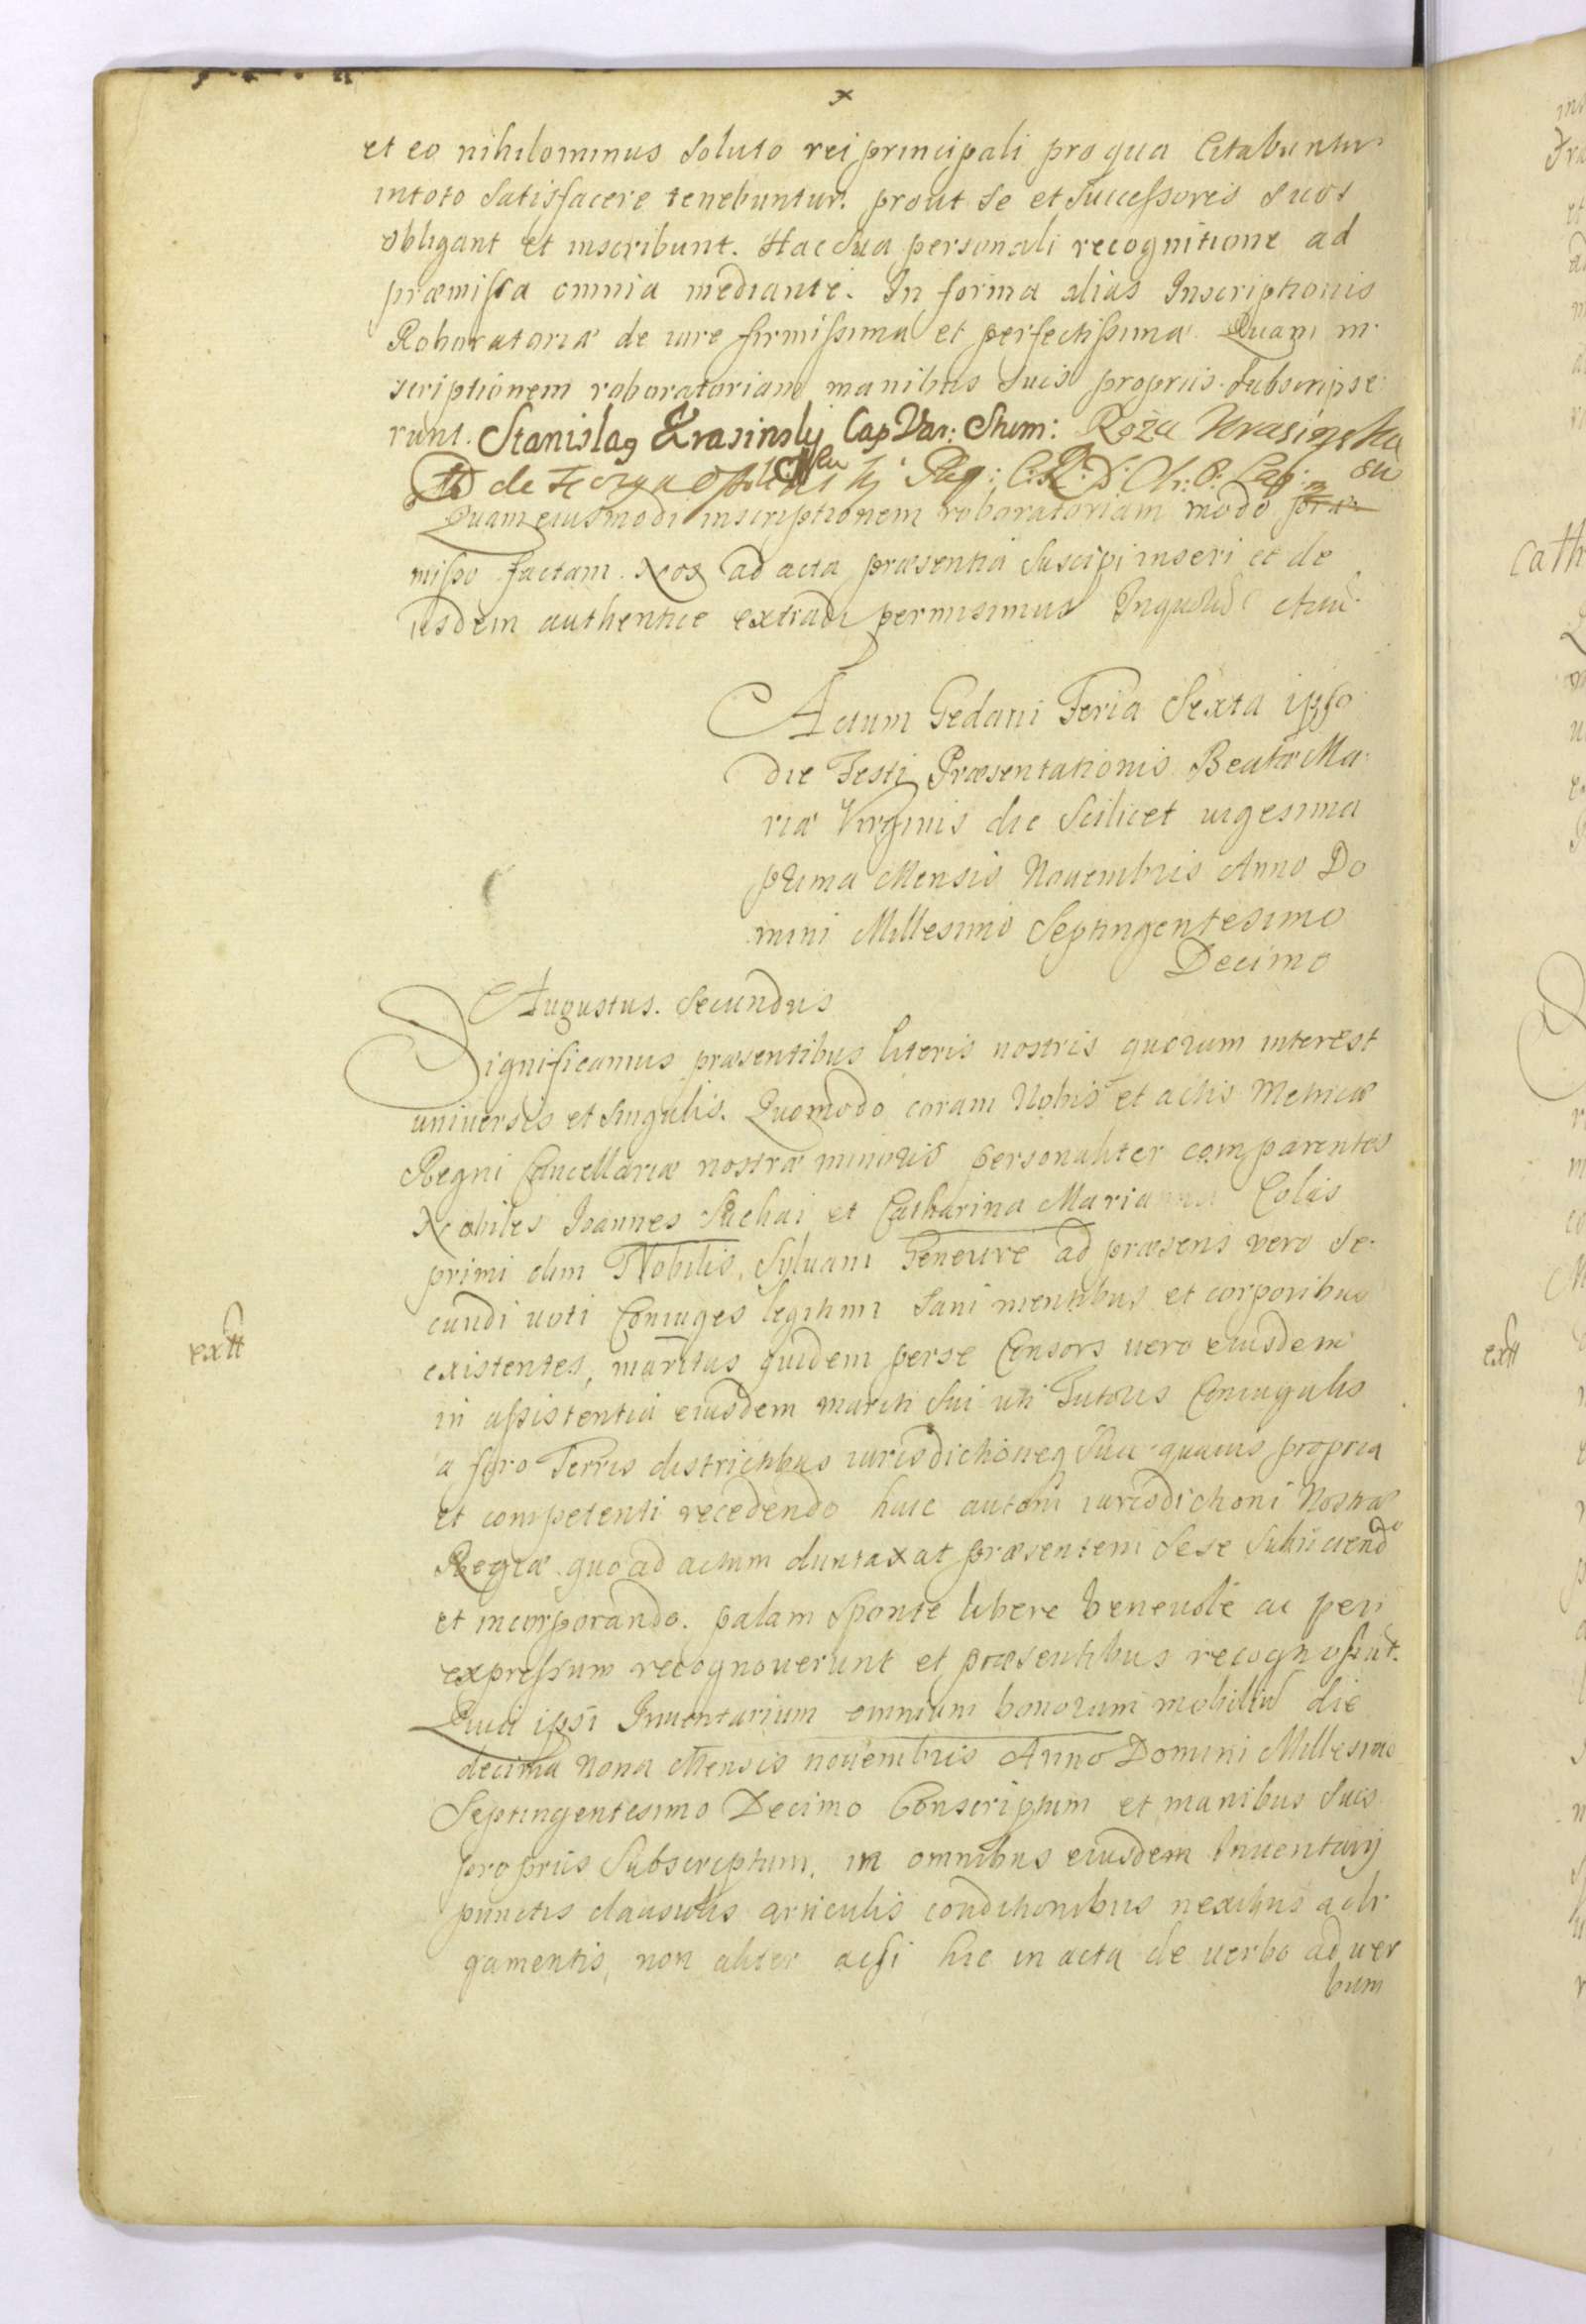 x
et eo nihilominus soluto rei principali pro qua Citabuntur
in toto satisfacere tenebuntur. prout se et Successores suos
obligant et inscribunt. Hac Sua personali recognitione ad
præmissa omnia mediante. In forma alias Inscriptionis
Roboratoriæ de iure firmissima et perfectissima. Quam in
scriptionem roboratoriam manibus suis propriis Subscripse
runt. Stanislag Krasinsky Cap Var: Shim: Róża Krasinska
de
Quam eiusmodi inscriptionem roboratoriam modo præ
misso factam. Nos ad acta præsentia Suscipi inseri et de
iisdem authentice extradi permisimus
Actum Gedani Feria Sexta ipso
die Festi Præsentationis Beatæ Ma
riæ Virginis die Scilicet uigesima
prima Mensis Nouembris Anno Do
mini Millesimo Septingentesimo
Decimo
Augustus Secundus
Significamus præsentibus literis nostris quorum interest
universis et singulis. Quomodo coram Nobis et actis Metricæ
Regni Cancellariæ nostræ minoris personaliter comparentes
Nobiles Ioannes Suchai et Catharina Marianna Colis
primi olim Nobilis, Syluani Geneure ad præsens vero se
cundi uoti Coniuges legitimi sani mentibus et corporibus
extt
existentes, maritus quidem per se Consors uero eiusdem
in assistentia eiusdem mariti sui uti Tutoris Coniugalis
a foro Terris districtibus iurisdictioneq sua quauis propria
et competenti recedendo huic autem iurisdictioni Nostræ
Regiæ quo ad actum duntaxat præsentem sese subiiciendo
et incorporando. palam sponte libere beneuole ac per
expressum recognouerunt et præsentibus recognoscunt.
Quia ipsi Inuentarium omnium bonorum mobiliũ die
decima nona Mensis nouembris Anno Domini Millesimo
Septingentesimo Decimo Conscriptum et manibus suis
propriis Subscriptum, in omnibus eiusdem Inuentarij
punctis clausulis articulis conditionibus nexibus ac li
gamentis, non aliter acsi hic in acta de uerbo ad uer
bum
Cath
extt